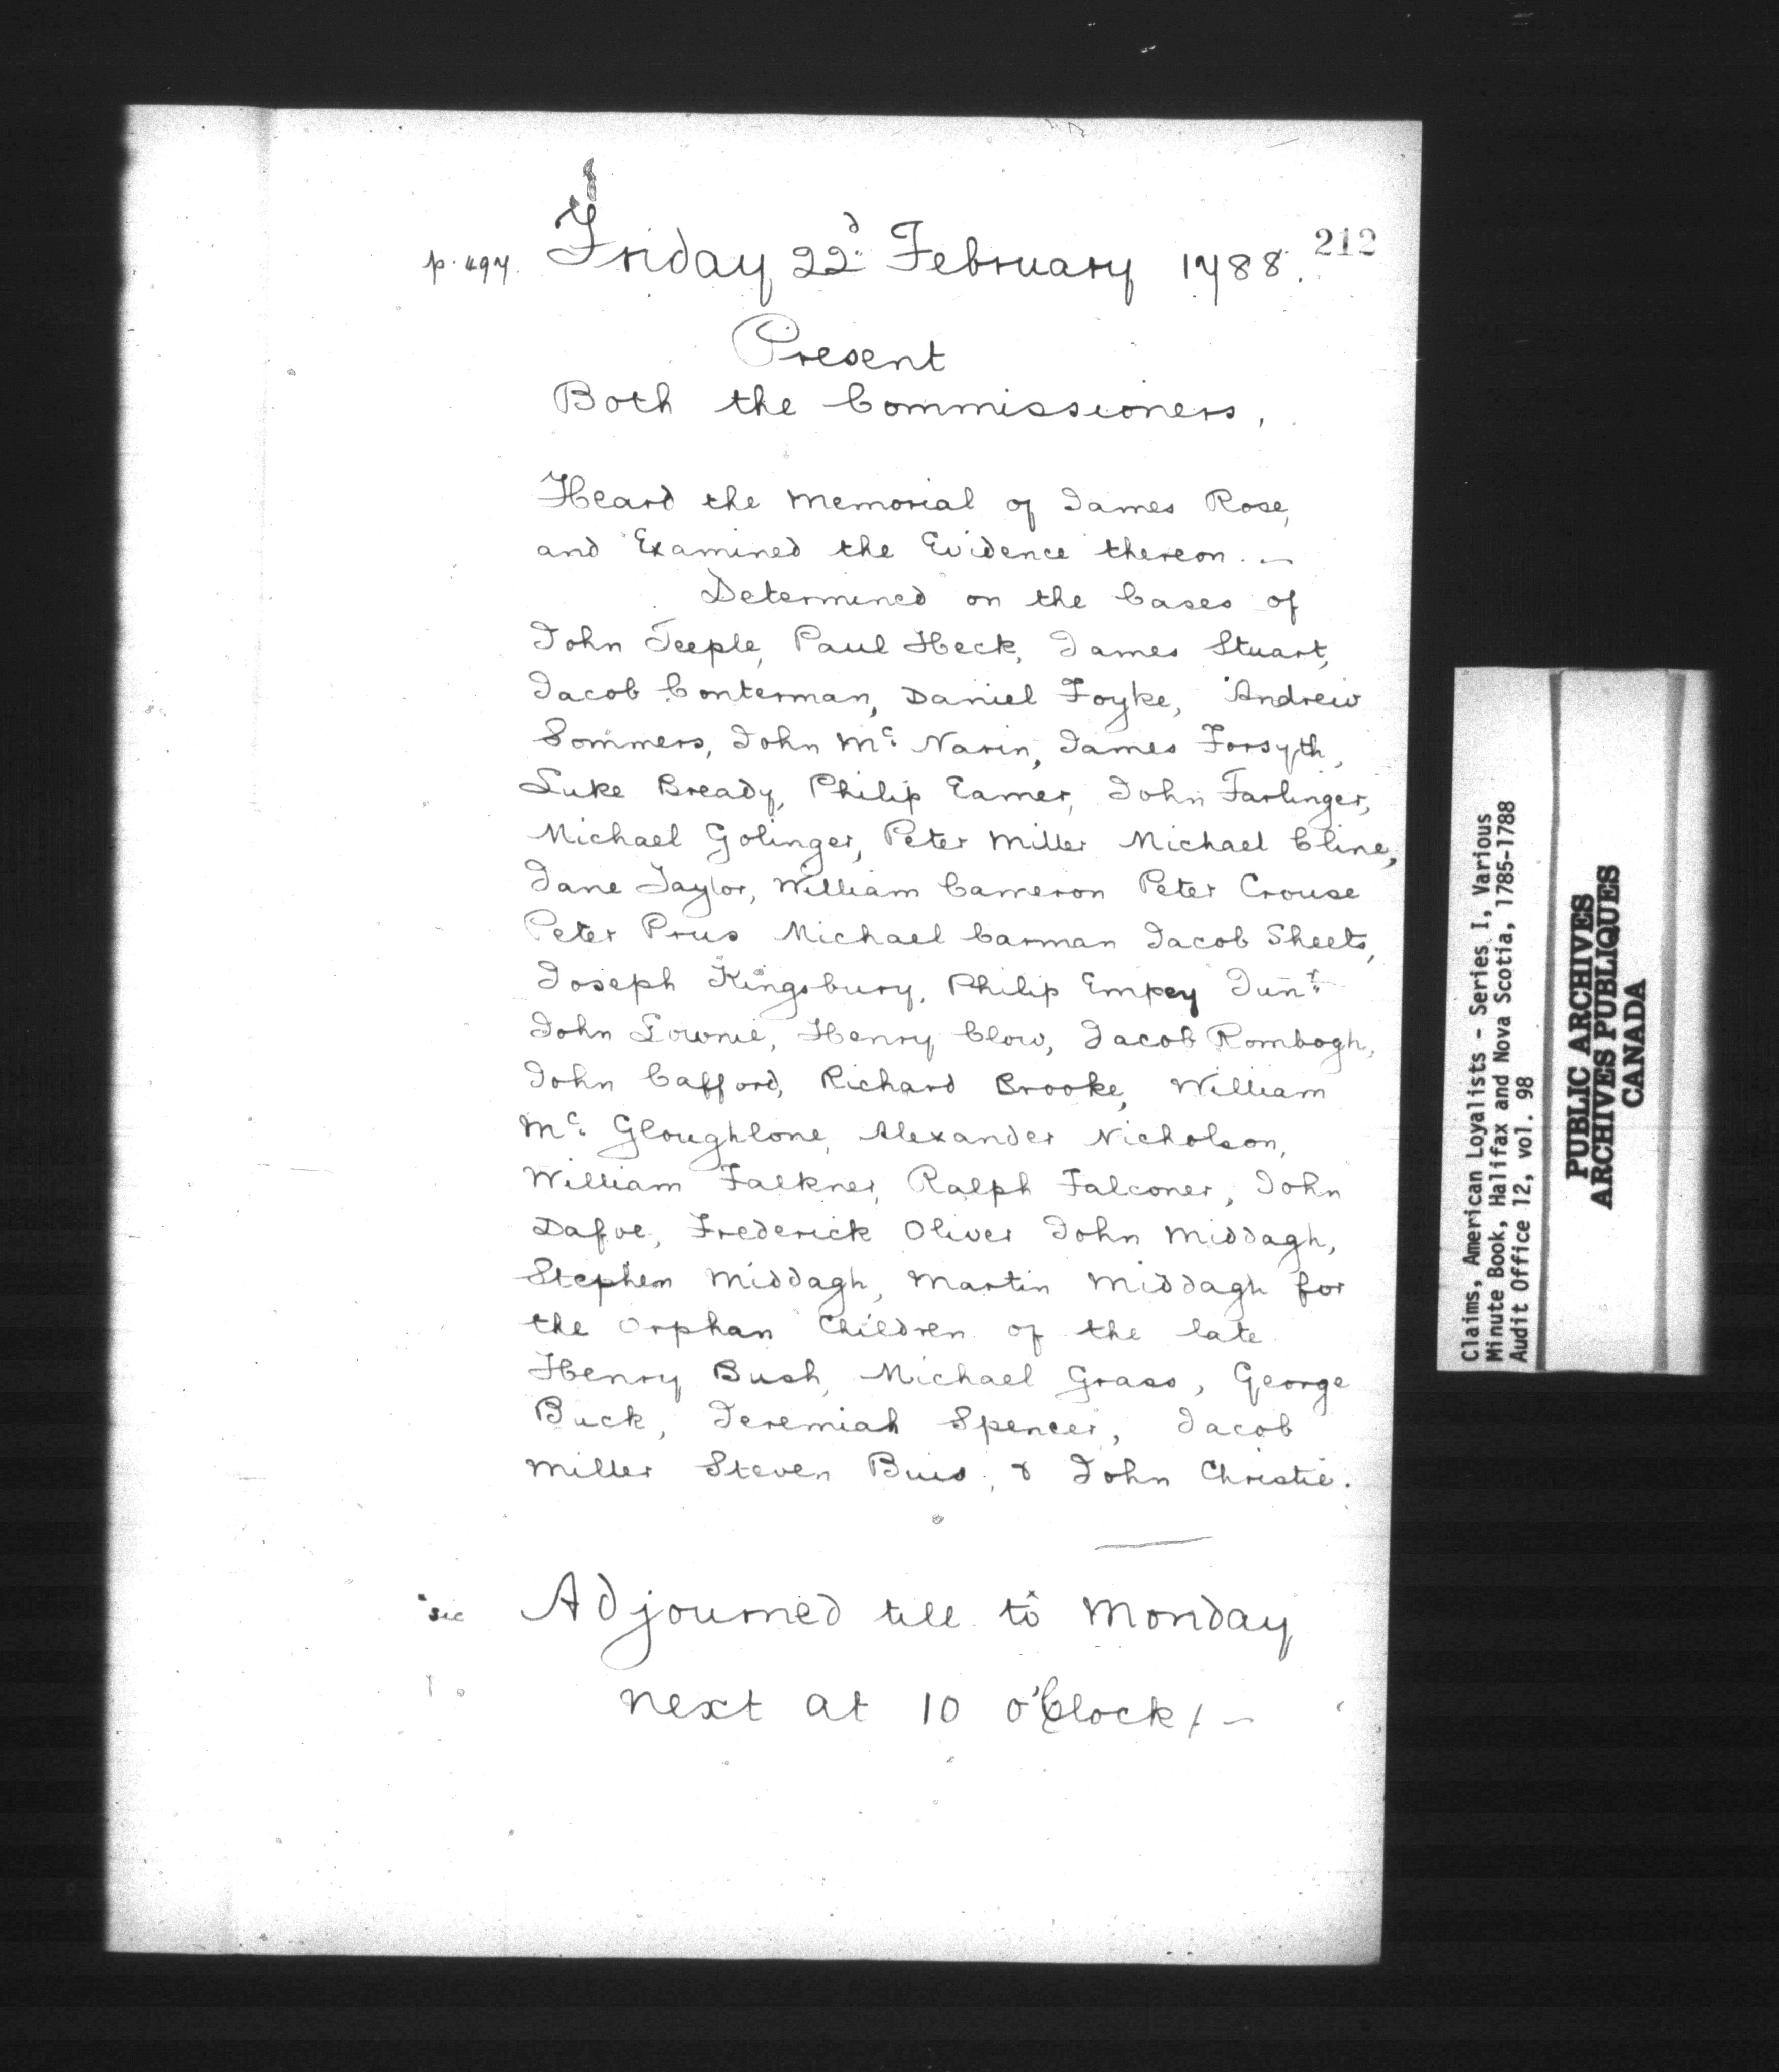 212
p. 497. Friday 22d February 1788.
Present
Both the Commissioners,
Heard the Memorial of James Rose,
and Examined the Evidence thereon. —
Determined on the Cases of
John Teeple, Paul Heck, James Stuart,
Jacob Conterman, Daniel Foyke, Andrew
Sommers, John Mc Narin, James Forsyth,
Luke Bready, Philip Eamer, John Farlinger,
Michael Golinger, Peter Miller Michael Cline,
Jane Taylor, William Cameron Peter Crouse
Peter Prus Michael Carman Jacob Sheets,
Joseph Kingsbury, Philip Empey Junr
John Lownie, Henry Clow, Jacob Rombogh,
John Cafford, Richard Brooke, William
Mc Gloughlone, Alexander Nicholson,
William Falkner, Ralph Falconer, John
Dafoe, Frederick Oliver John Middagh,
Stephen Middagh, Martin Middagh for
the Orphan Children of the late
Henry Bush, Michael Grass, George
Buck, Jeremiah Spencer, Jacob
Miller Steven Buis, & John Christie.
x sic Adjourned till to x Monday
next at 10 o'Clock / —
Claims, American Loyalists - Series I, Various
Minute Book, Halifax and Nova Scotia, 1785-1788
Audit Office 12, vol. 98
PUBLIC ARCHIVES
ARCHIVES PUBLIQUES
CANADA